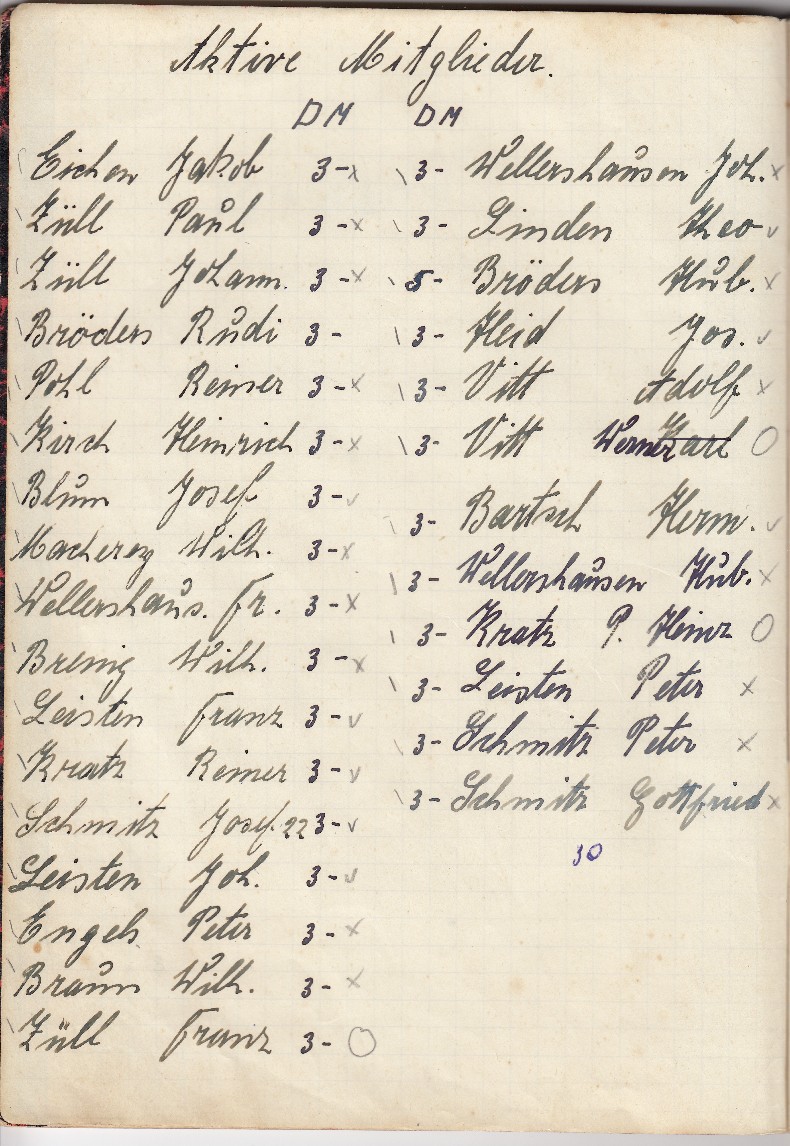 Aktive Mitglieder.
DM DM
Eichen Jakob 3-x \ 3- Wellershausen Joh. x
Züll Paul 3-x \ 3- Linden Theo v
Züll Johann. 3-x \ 5- Bröders Hub. x
Bröders Rudi 3- \ 3- Heid Jos. v
Pohl Reiner 3-x \ 3- Vitt Adolf x
Kirch Heinrich 3-x \ 3- Vitt Werner Karl O
Blum Josef 3-v \ 3- Bartsch Herm. v
Macherey Wilh. 3-x \ 3- Wellershausen Hub. x
Wellershaus. Fr. 3-x \ 3- Kratz P. Heinz O
Brenig Wilh. 3-x \ 3- Leisten Peter x
Leisten Franz 3-v \ 3- Schmitz Peter x
Kratz Reiner 3-v \ 3- Schmitz Gottfried x
Schmitz Josef. 22 3-v
Leisten Joh. 3-v 30
Engels Peter 3-x
Braun Wilh. 3-x
Züll Franz 3-O